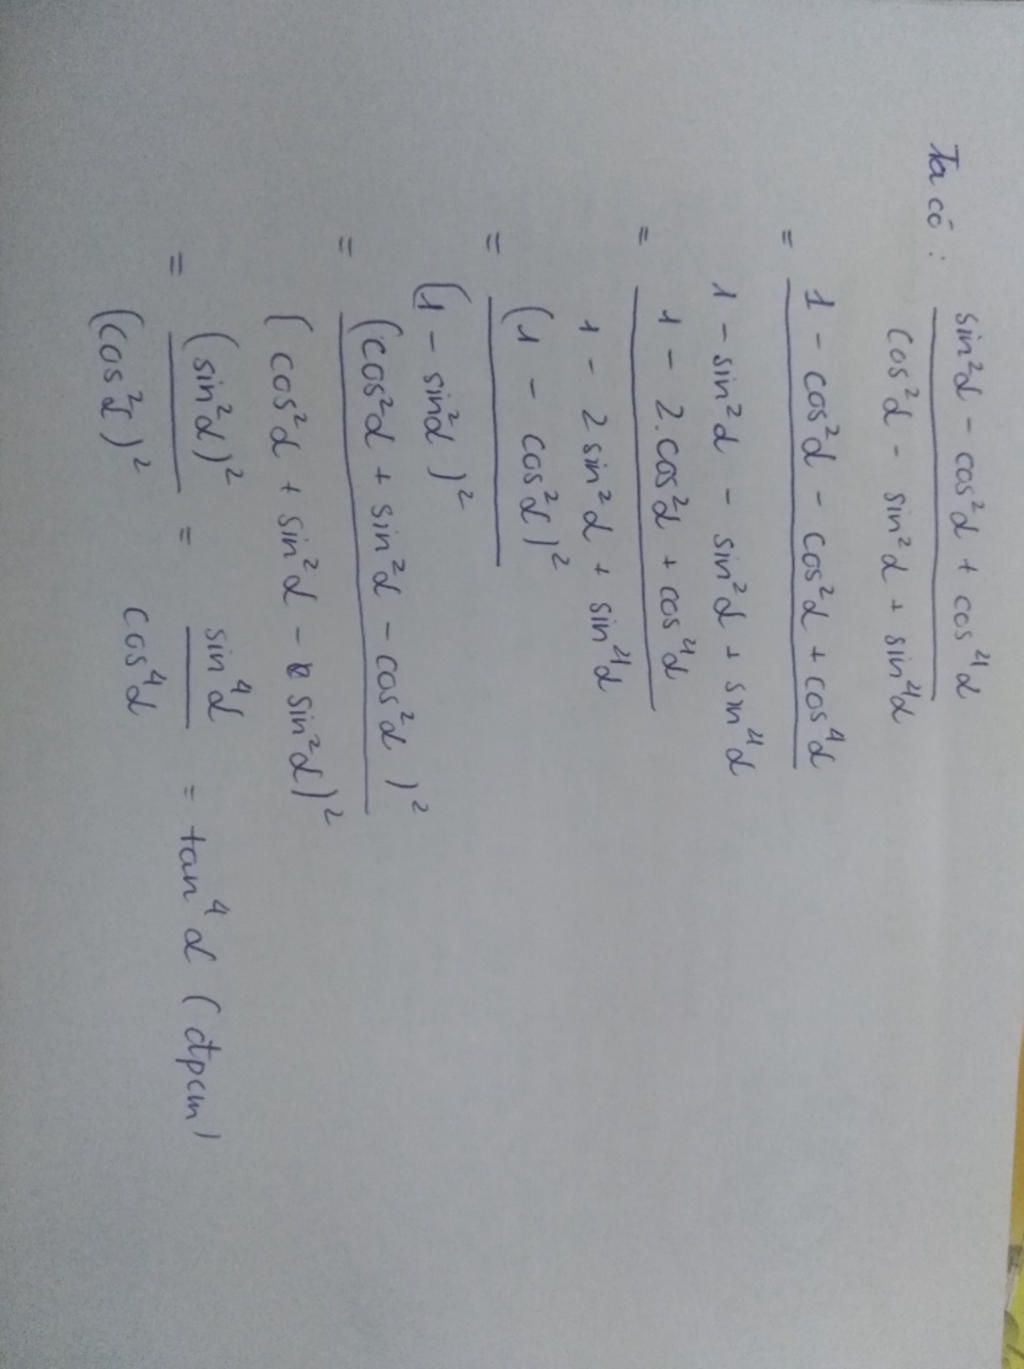 Ta có : sin²α - cos²α + cos⁴α
cos²α - sin²α + sin⁴α
= 1 - cos²α - cos²α + cos⁴α
1 - sin²α - sin²α + sin⁴α
= 1 - 2.cos²α + cos⁴α
1 - 2 sin²α + sin⁴α
= (1 - cos²α)²
(1 - sin²α)²
= (cos²α + sin²α - cos²α)²
(cos²α + sin²α - sin²α)²
= (sin²α)² = sin⁴α = tan⁴α (đpcm)
(cos²α)² cos⁴α